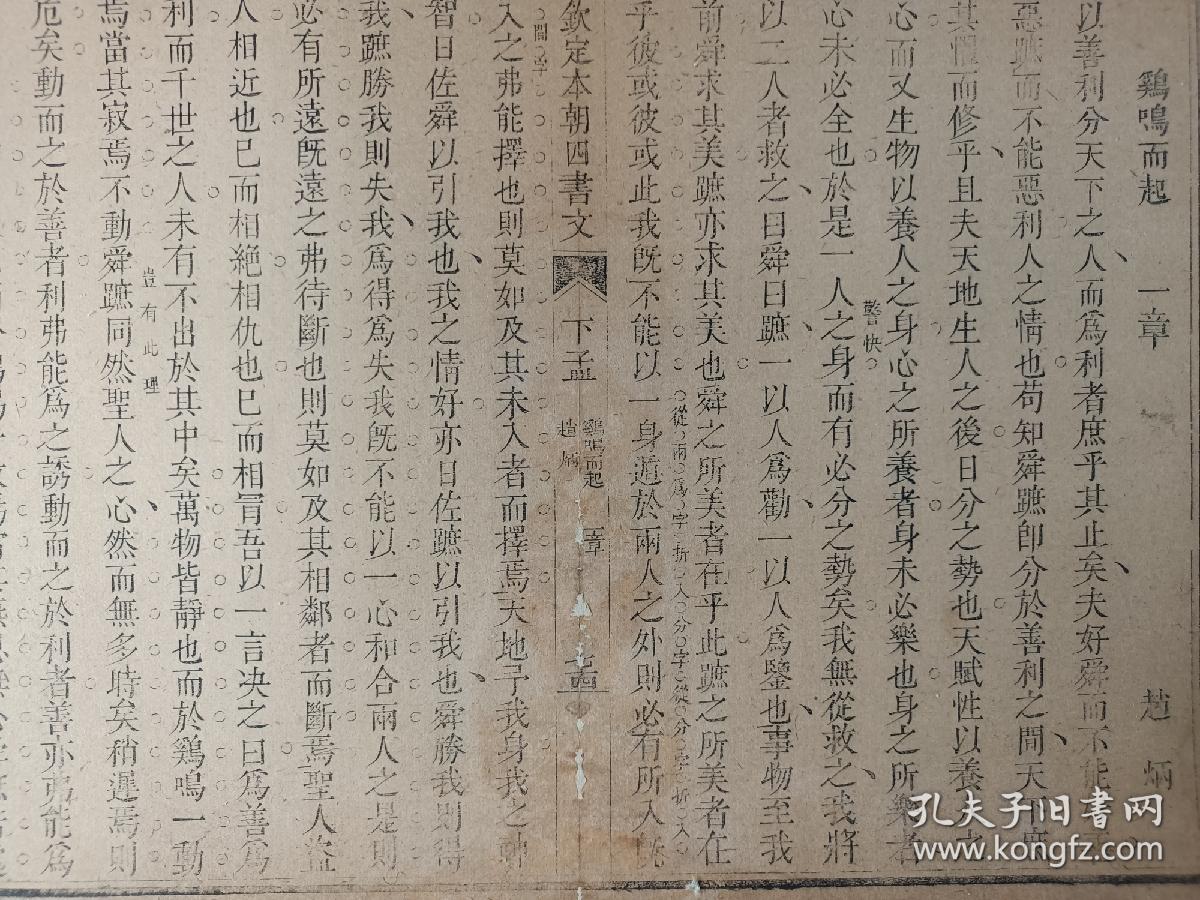 鷄鳴而起 一章 趙炳
以善利分天下之人而爲利者庶乎其止矣夫好舜而不能
惡蹠而不能惡利人之情也苟知舜蹠卽分於善利之間天下庶
其懼而修乎且夫天地生人之後日分之勢也天賦性以養人之
心而又生物以養人之身心之所養者身未必樂也身之所樂者
警快
心未必全也於是一人之身而有必分之勢矣我無從救之我將
以二人者救之曰舜曰蹠一以人爲勸一以人爲鑒也事物至我
前舜求其美蹠亦求其美也舜之所美者在乎此蹠之所美者在
從兩爲字折入分字從分字折入
乎彼或彼或此我旣不能以一身遁於兩人之外則必有所入旣
欽定本朝四書文 下孟 鷄鳴而起 一章 趙炳
入之弗能擇也則莫如及其未入者而擇焉天地予我身我之神
智日佐舜以引我也我之情好亦日佐蹠以引我也舜勝我則得
我蹠勝我則失我爲得爲失我旣不能以一心和合兩人之是則
必有所遠旣遠之弗待斷也則莫如及其相鄰者而斷焉聖人盜
人相近也已而相絶相仇也已而相冐吾以一言決之曰爲善爲
利而千世之人未有不出於其中矣萬物皆靜也而於鷄鳴一動
豈有此理
焉當其寂焉不動舜蹠同然聖人之心然而無多時矣稍遲焉則
危矣動而之於善者利弗能爲之誘動而之於利者善亦弗能爲